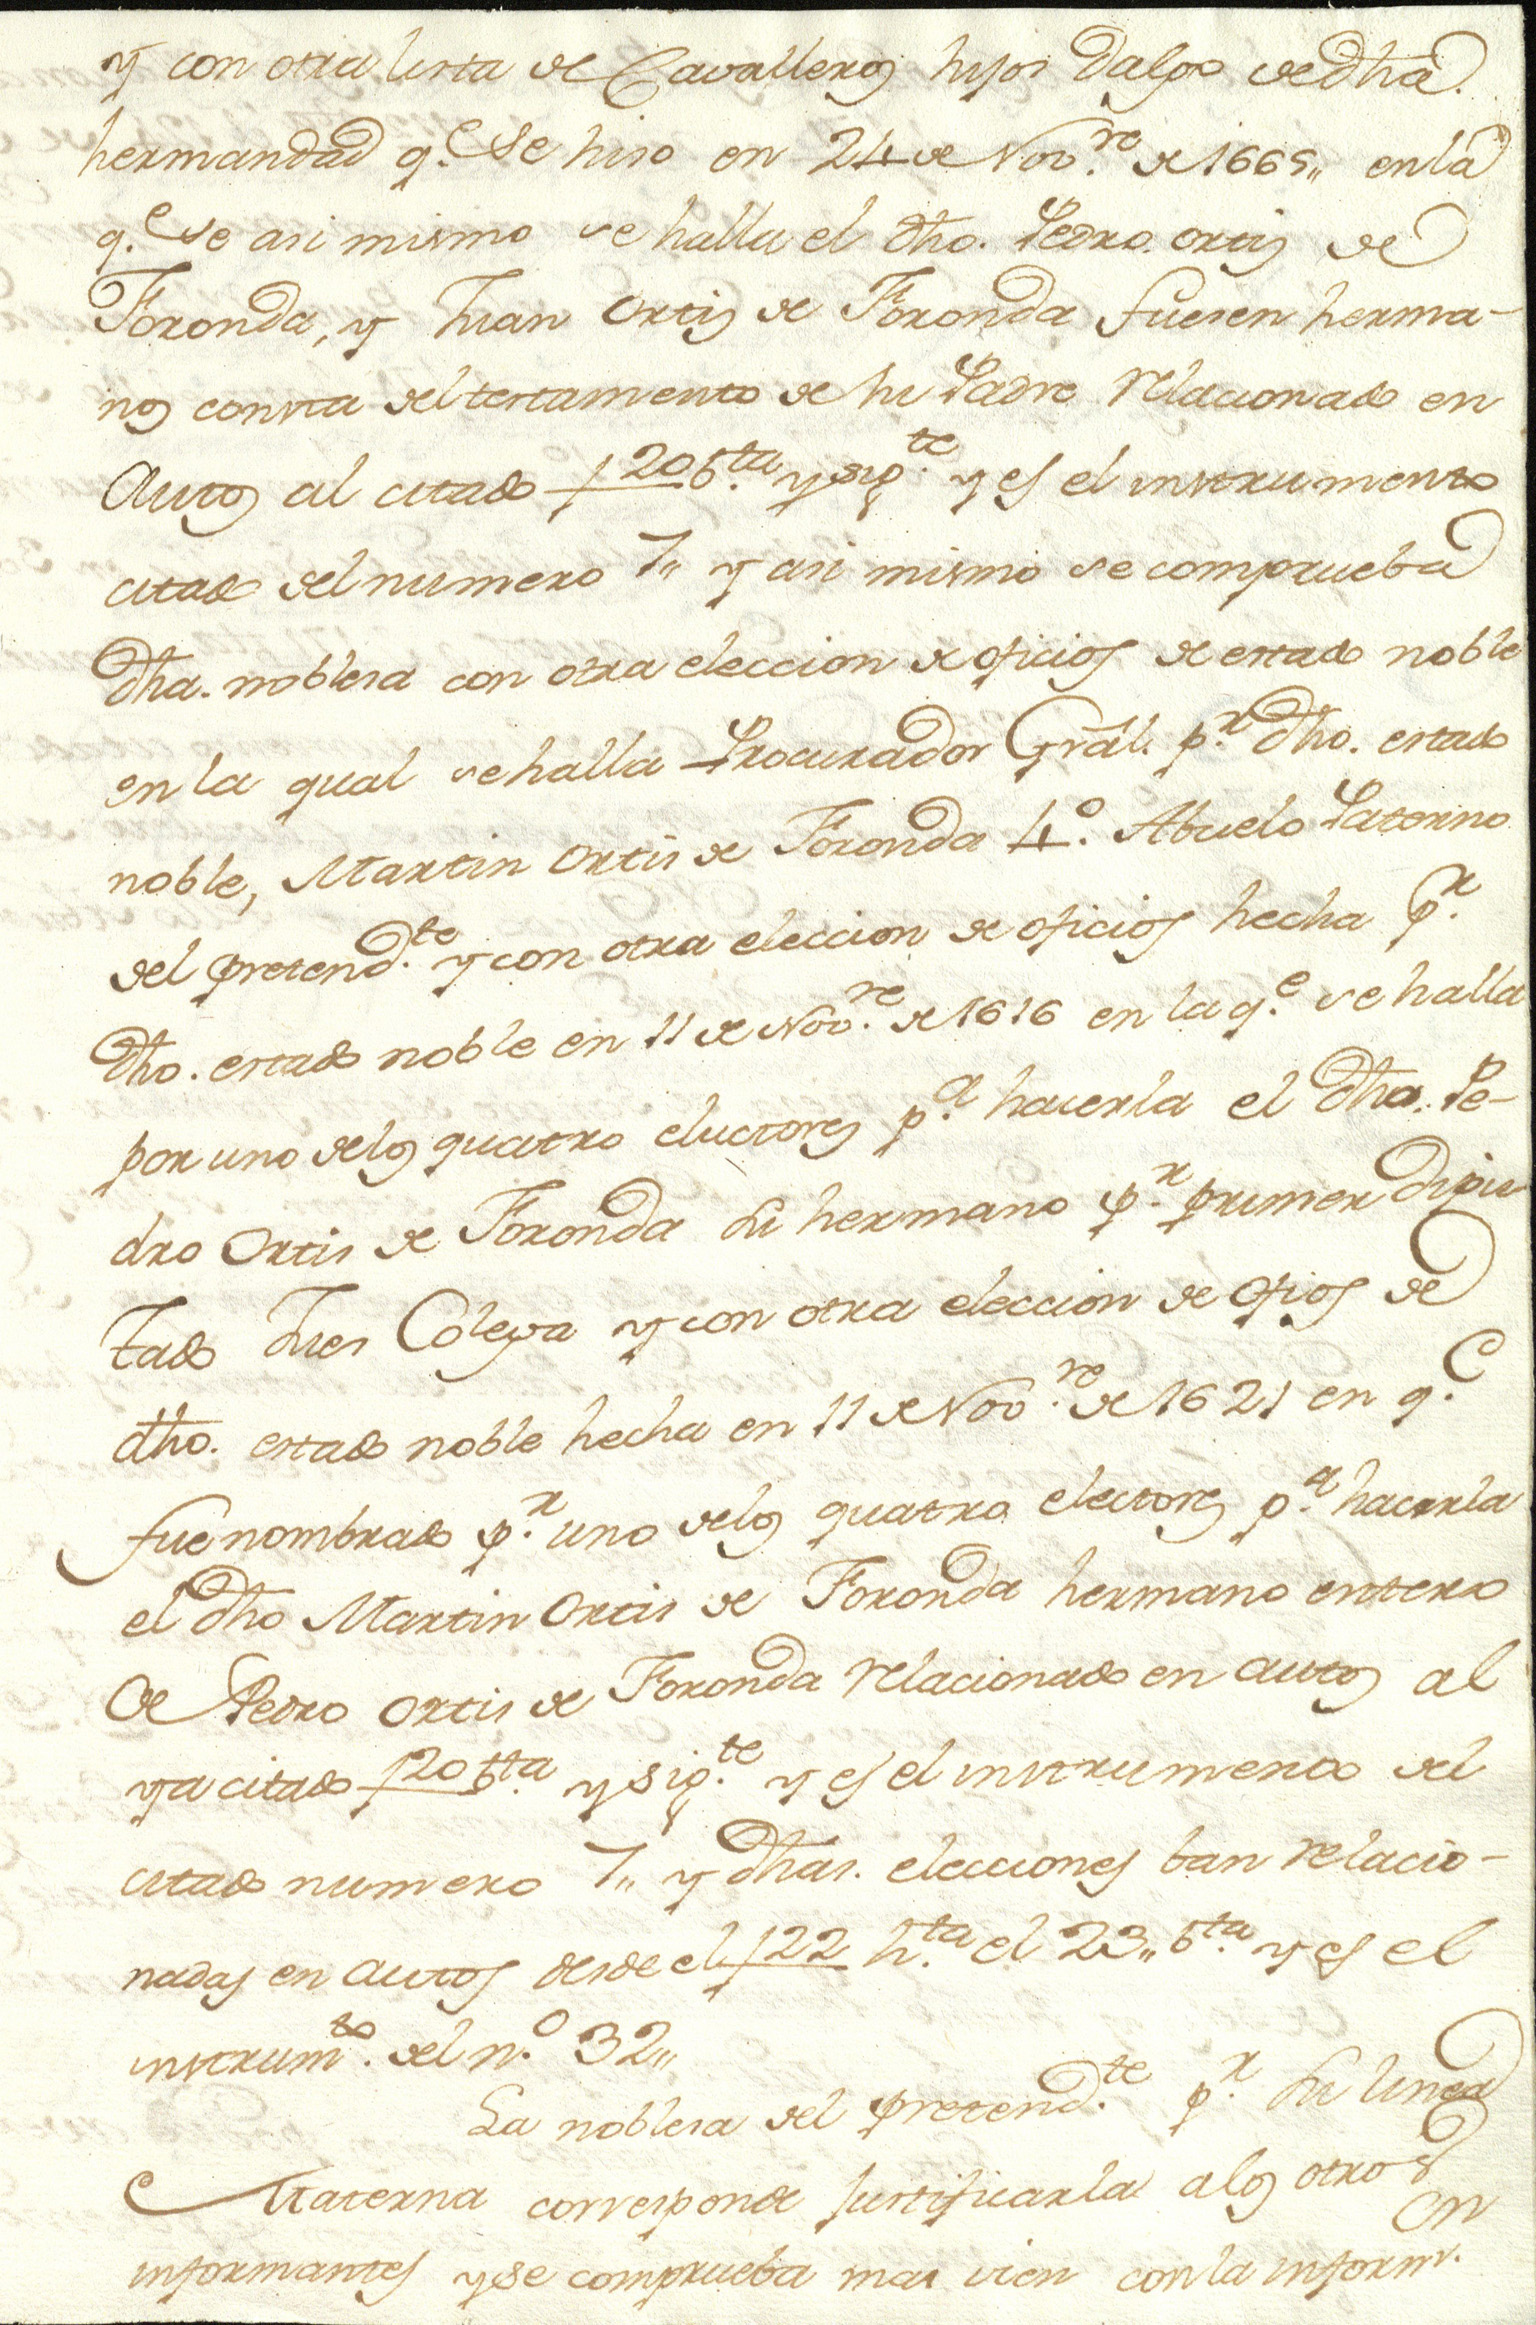 y con otra lista de Cavalleros hijos Dalgo de dha.
hermandad q.e se hiso en 24 de Nov.re de 1665,, en la
q.e se asi mismo se halla el dho. Pedro Ortis de
Foronda, y Juan Ortis de Foronda fuesen herma-
nos consta del testamento de su Padre relacionado en
Autos al citado f 20 b.ta y sig.te y es el instrumento
citado del numero 7,, y asi mismo se comprueba
dha. noblesa con otra eleccion de oficios de estado noble
en la qual se halla Procurador Gral. p.r dho. estado
noble, Martin Ortis de Foronda 4.o Abuelo Paterno
del pretend.te y con otra eleccion de oficios hecha p.r
dho. estado noble en 11 de Nov.re de 1616 en la q.e se halla
por uno de los quatro eluctores p.a hacerla el dho. Pe-
dro Ortis de Foronda su hermano p.r primer dipu
tado Jues Colega y con otra eleccion de ofios de
dho. estado noble hecha en 11 de Nov.re de 1621 en q.e
fue nombrado p.r uno de los quatro electores p.a hacerla
el dho Martin Ortis de Foronda hermano entero
de Pedro Ortis de Foronda relacionado en autos al
ya citado f 20 b.ta y sig.te y es el instrumento del
citado numero 7,, y dhas. elecciones ban relacio-
nadas en autos desde el f 22 h.ta el 23,, b.ta y es el
instrum.to del n.o 32,,
La noblesa del pretend.te p.r su linea
Materna corresponde justificarla a los otros
informantes y se comprueba mas vien con la inform.on